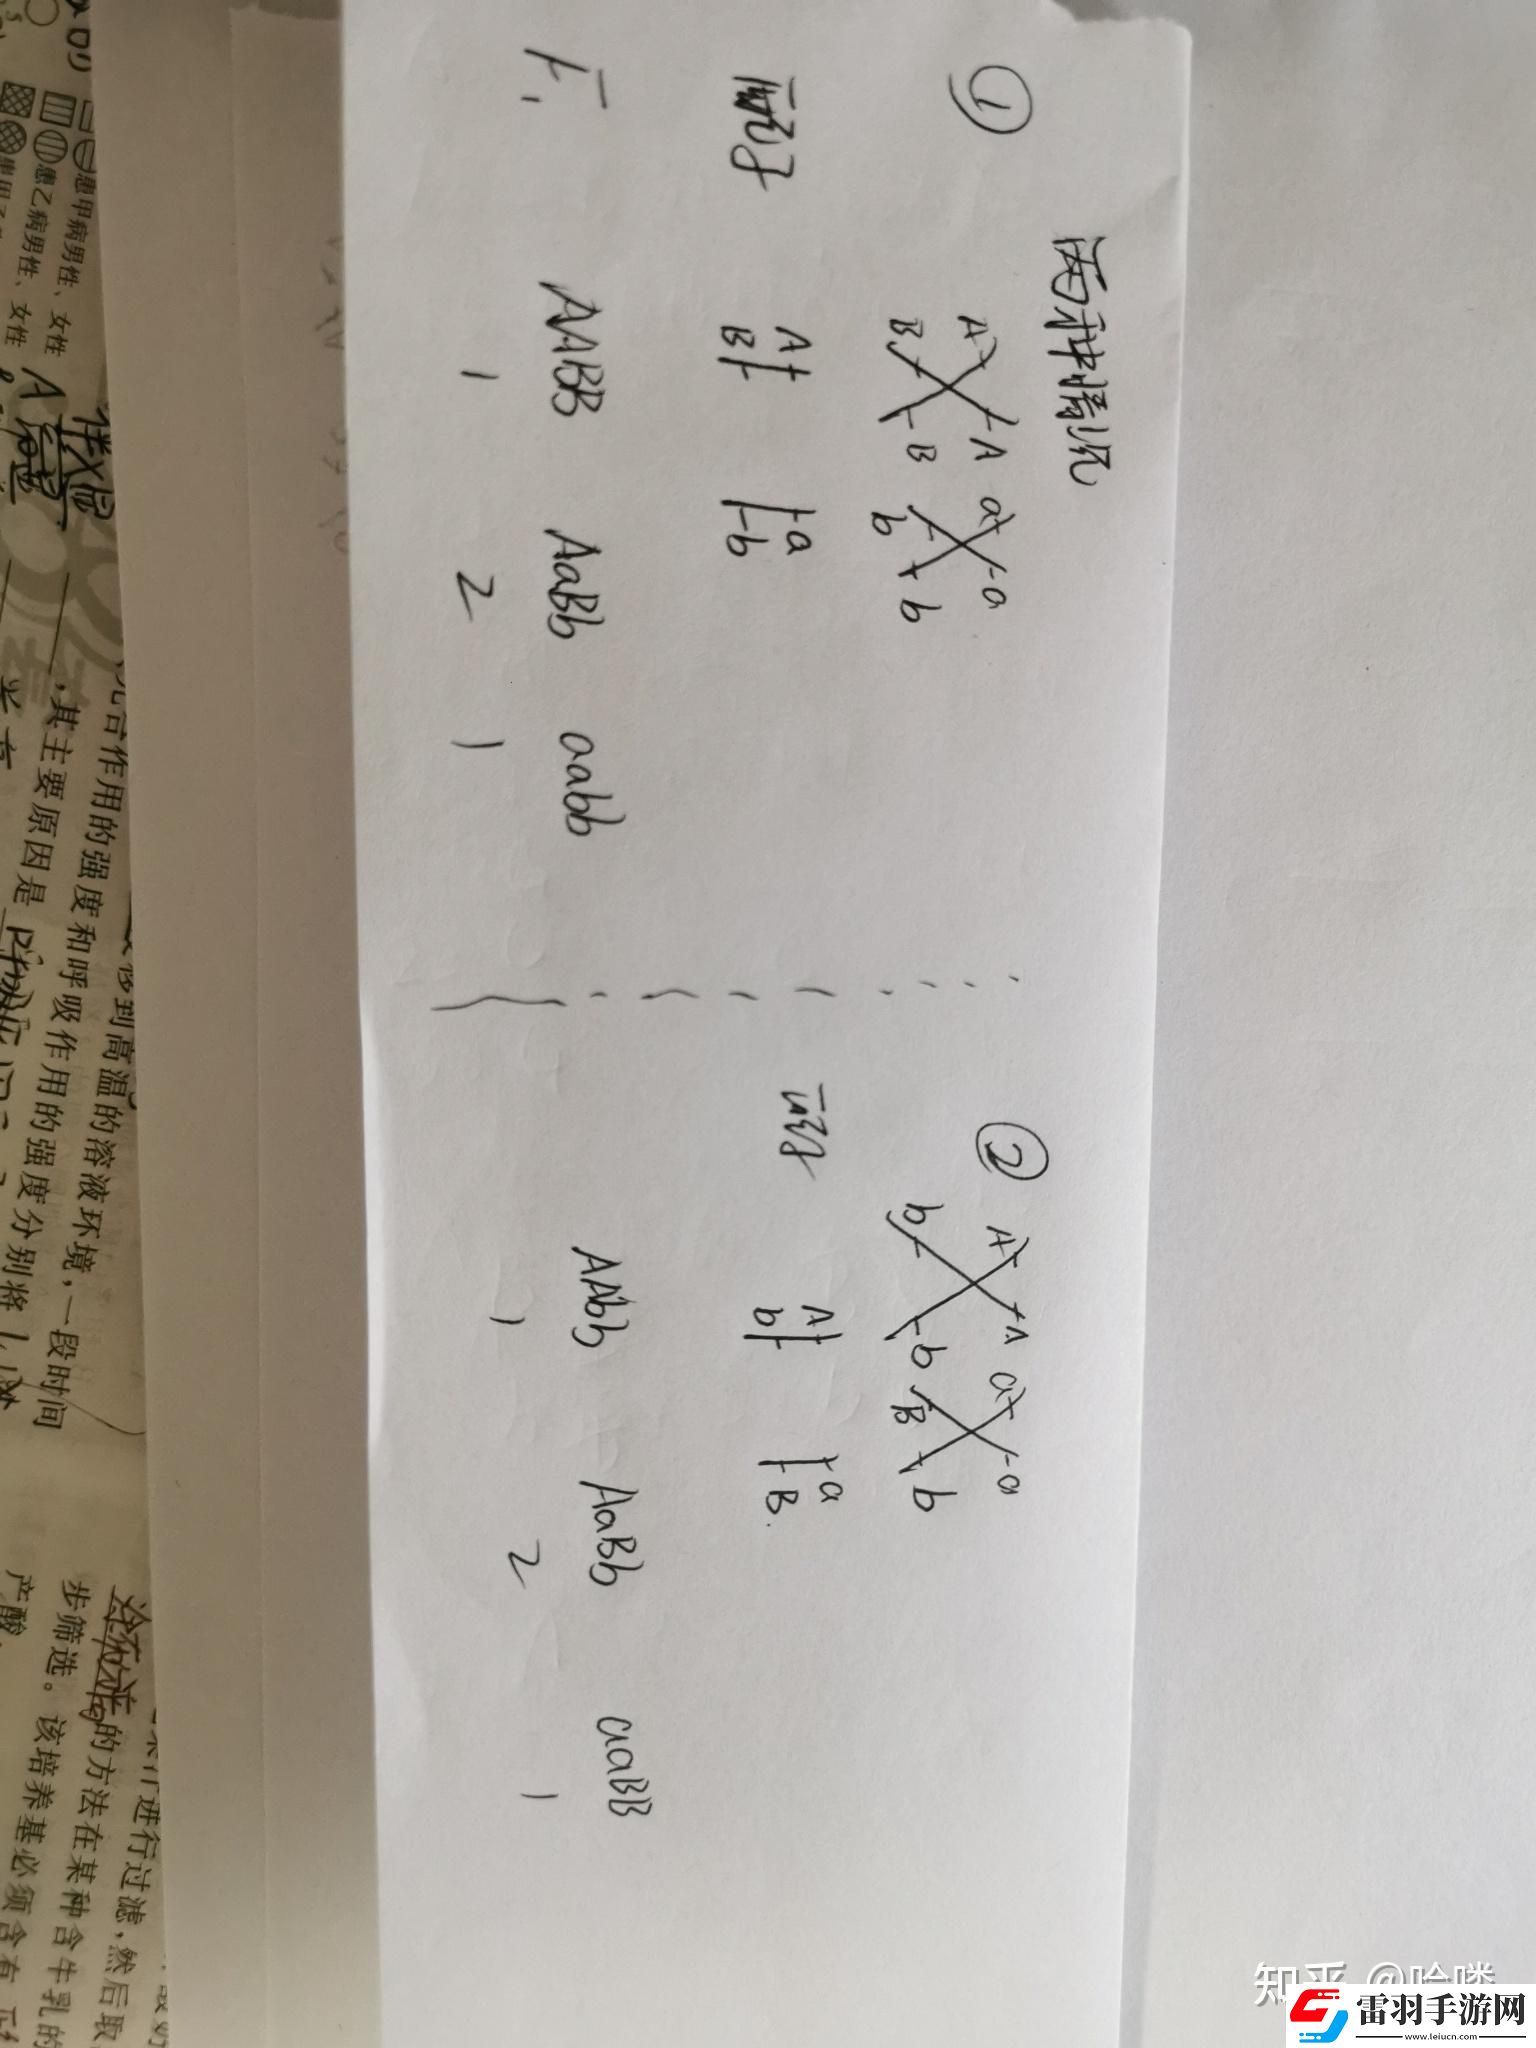 两种情况
①
A A a a
B B b b
配子
A a
B b
F₁
AABB AaBb aabb
1 2 1
②
A A a a
b b B b
配子
A a
b B.
AAbb AaBb aaBB
1 2 1
患甲病男性、女性
患乙病男性、女性
伴X显
A
光合作用的强度和呼吸作用的强度分别将
,其主要原因是
移到高温的溶液环境,一段时间
进行过滤,然后取
涂布
的方法在某种含牛乳的
步筛选。该培养基必须含有
产酸
知乎 @哈喽
雷羽手游网
www.leiucn.com